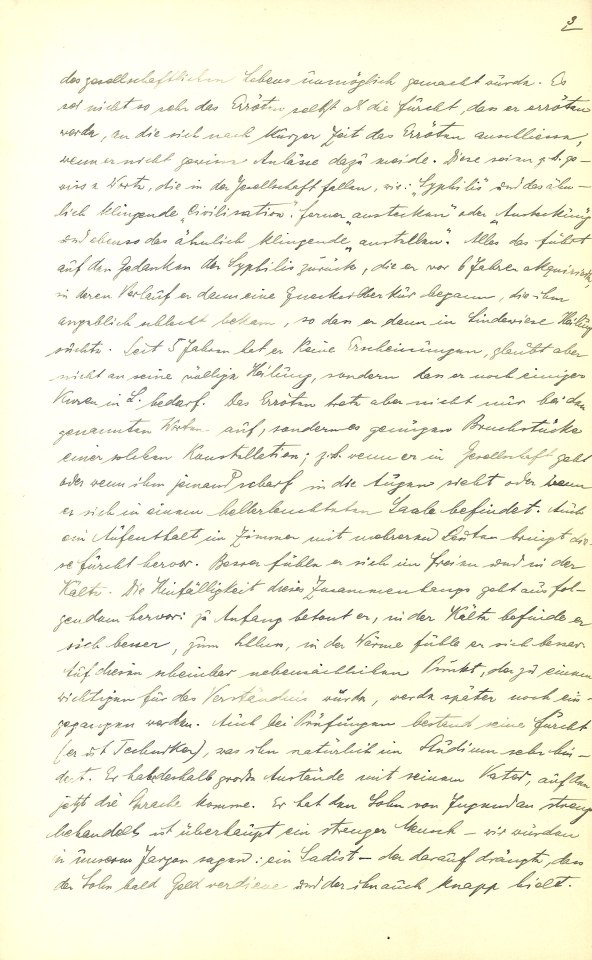 3
des gesellschaftlichen Lebens unmöglich gemacht würde. Es
sei nicht so sehr das Erröten selbst als die Furcht, dass er erröten
werde, an die sich nach kurzer Zeit das Erröten anschliesse,
wenn er nicht gewisse Anlässe dazu meide. Diese seien z.b. ge-
wisse Worte, die in der Gesellschaft fallen, wie: "Syphilis" und das ähn-
lich klingende "Civilisation", ferner "anstecken" oder Ansteckung
und ebenso das ähnlich klingende "anstellen". Alles das führt
auf den Gedanken der Syphilis zurück, die er vor 6 Jahren akquirierte,
in deren Verlauf er dann eine Quecksilberkur begann, die ihm
angeblich schlecht bekam, so dass er dann in Lindewiese Heilung
suchte. Seit 5 Jahren hat er keine Erscheinungen, glaubt aber
nicht an seine völlige Heilung, sondern dass er noch einiger
Kuren in L. bedarf. Das Erröten trete aber nicht nur bei den
genannten Worten auf, sondern es genügen Bruchstücke
einer solchen Konstellation; z.b. wenn er in Gesellschaft geht
oder wenn ihm jemand scharf in die Augen sieht oder wenn
er sich in einem hellerleuchteten Saale befindet. Auch
ein Aufenthalt im Zimmer mit mehreren Leuten bringt die-
se Furcht hervor. Besser fühle er sich im Freien und in der
Kälte. Die Hinfälligkeit dieses Zusammenhangs geht aus fol-
gendem hervor: zu Anfang betont er, in der Kälte befinde er
sich besser, zum Schluss, in der Wärme fühle er sich besser.
Auf diesen scheinbar nebensächlichen Punkt, der zu einem
wichtigen für das Verständnis wurde, werde später noch ein-
gegangen werden. Auch bei Prüfungen bestand seine Furcht
(er ist Techniker), was ihn natürlich im Studium sehr hin-
dert. Er habe deshalb grosse Anstände mit seinem Vater, auf den
jetzt die Sprache komme. Er hat den Sohn von Jugend an streng
behandelt ist überhaupt ein strenger Mensch – wir würden
in unserem Jargon sagen: ein Sadist – der darauf drängte, dass
der Sohn bald Geld verdiene und der ihn auch knapp hielt.